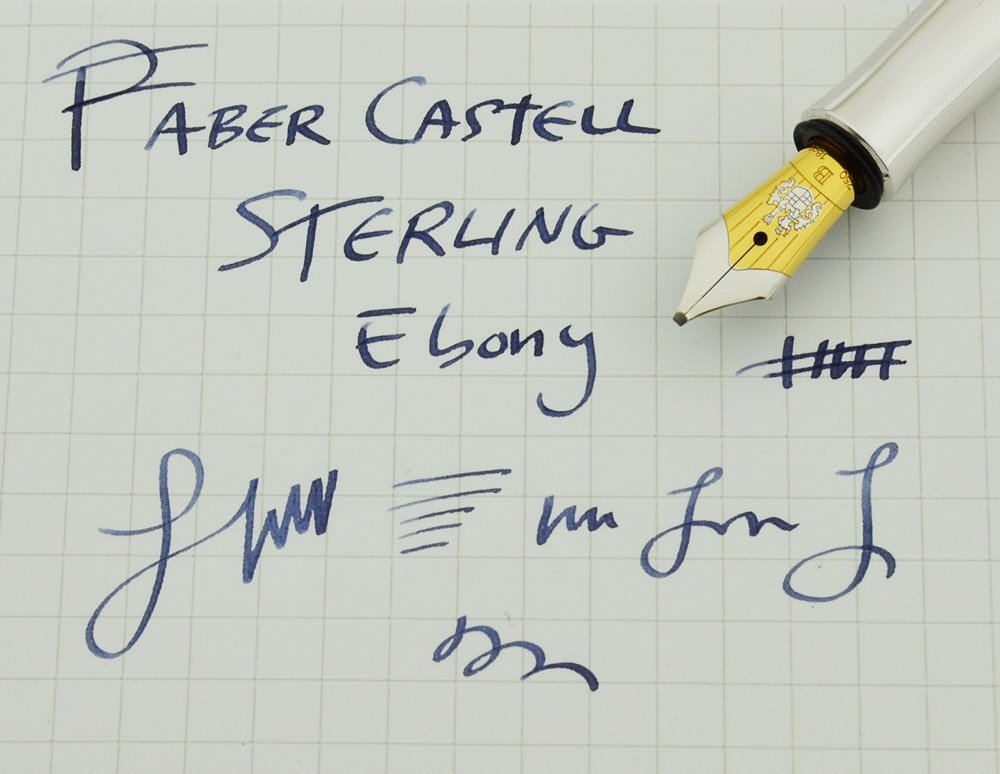 FABER CASTELL
STERLING
Ebony
B
750